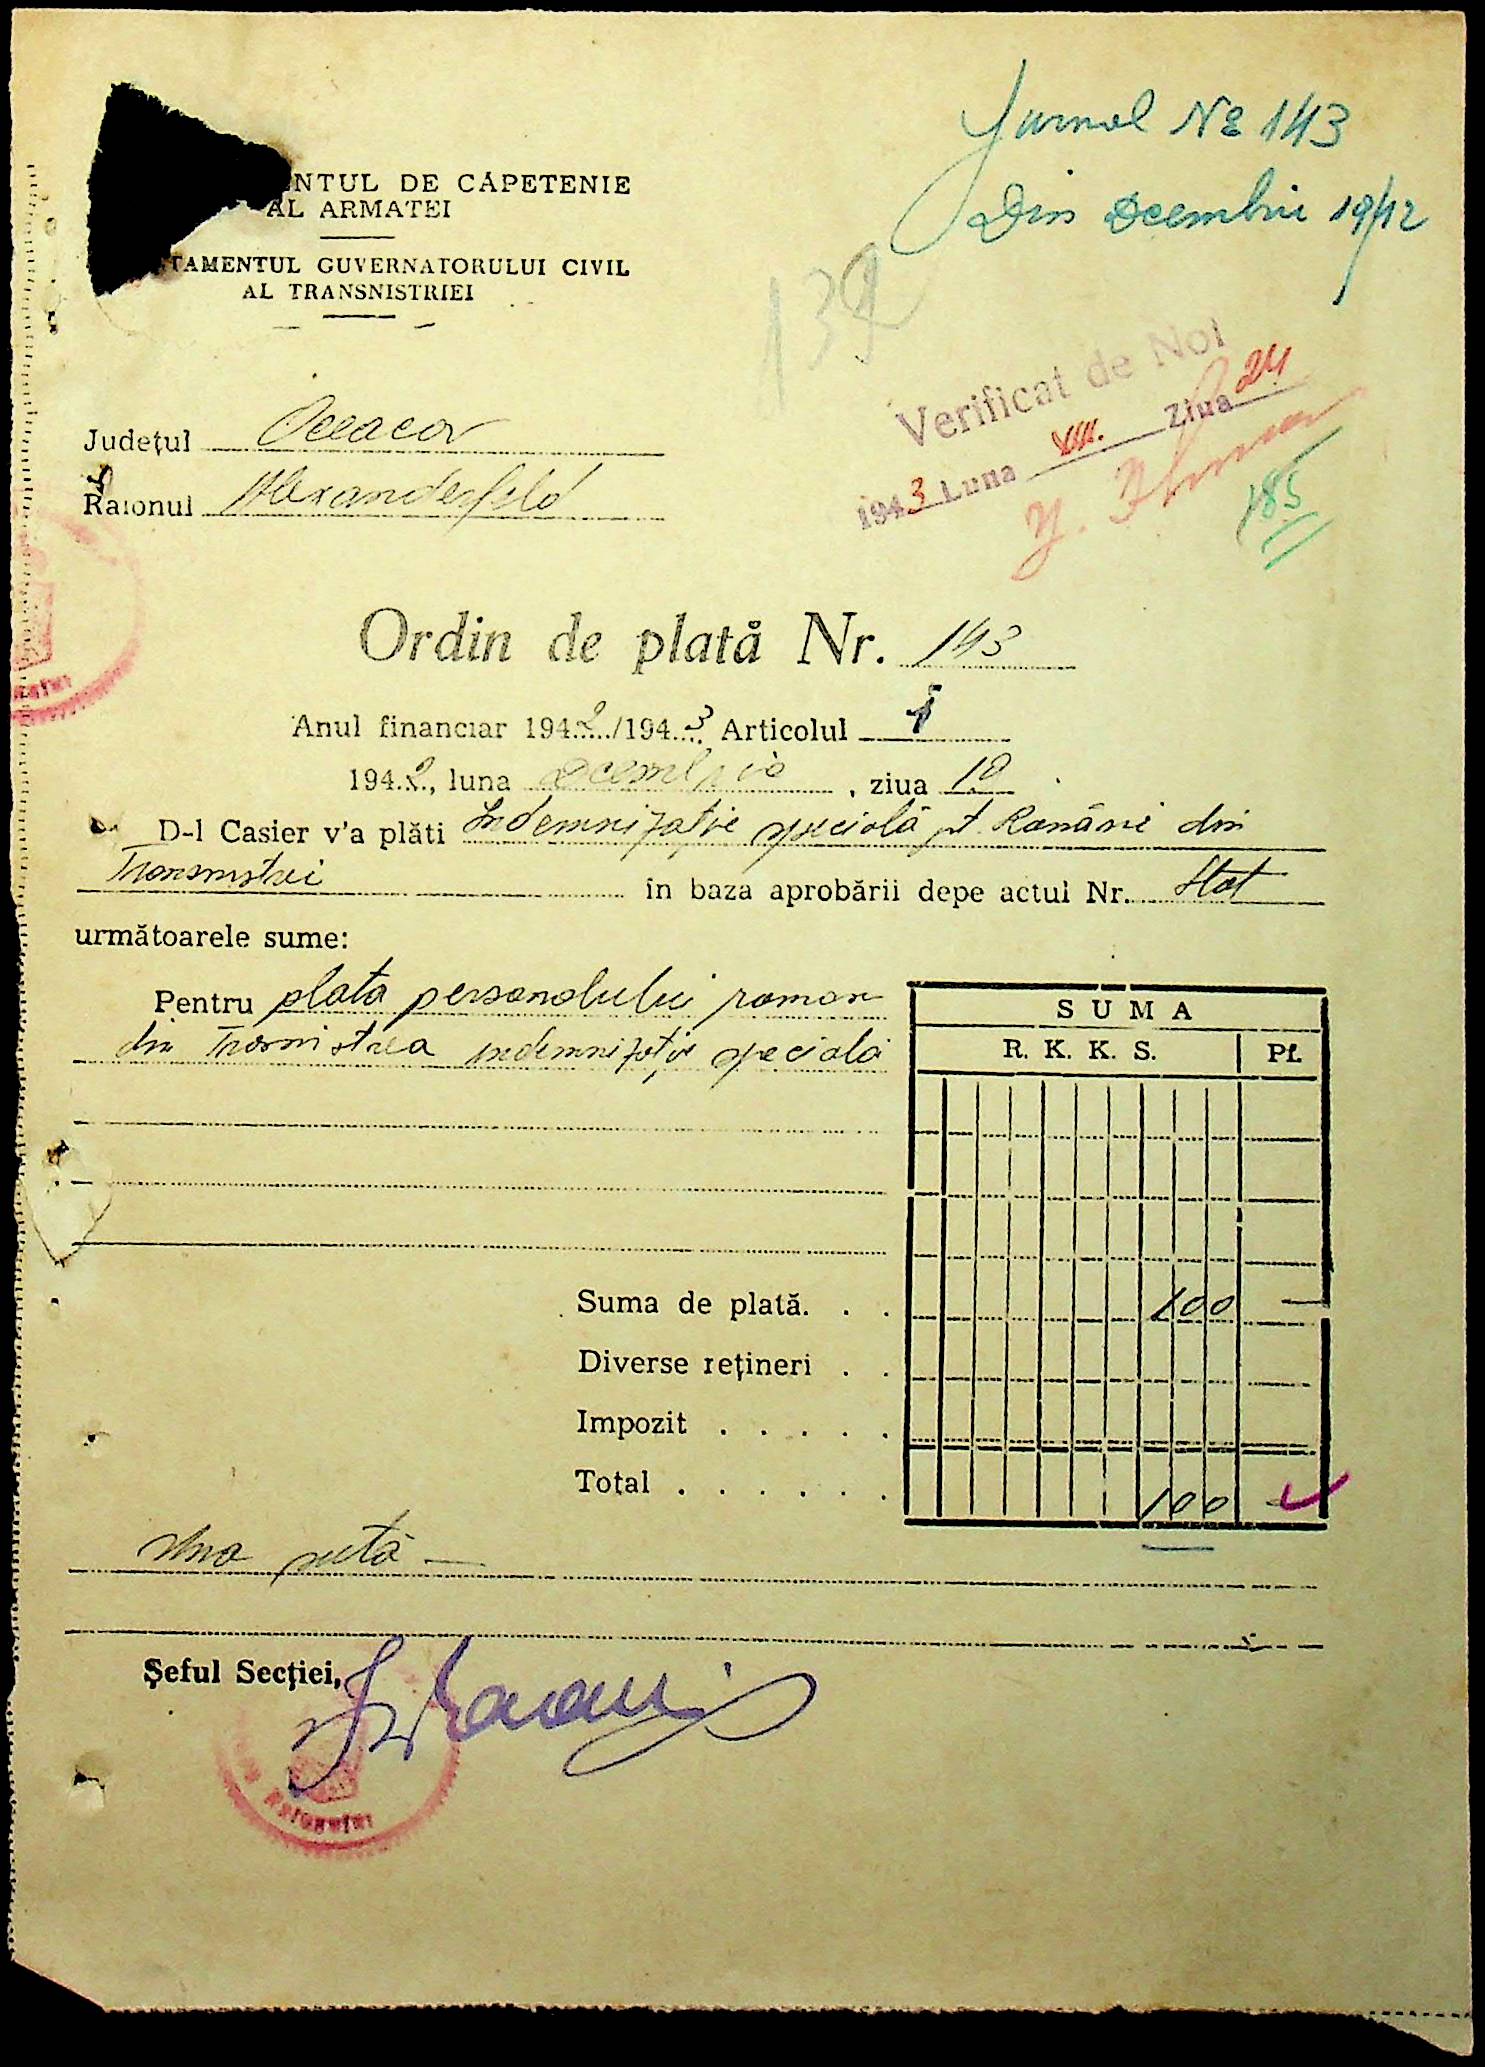 Jurnal № 143
Din Decembrie 1942
NTUL DE CĂPETENIE
AL ARMATEI
TAMENTUL GUVERNATORULUI CIVIL
AL TRANSNISTRIEI
139
Verificat de Noi
1943 Luna VIII. Ziua 24
185
Județul Oceacov
Raionul Alexanderfeld
Ordin de plată Nr. 143
Anul financiar 1942/1943 Articolul 1
1942, luna Decembrie, ziua 10
D-l Casier v'a plăti Indemnizație specială pt. Românii din
Transnistrei în baza aprobării depe actul Nr. Stat
următoarele sume:
Pentru plata personalului roman
din Transnistrea indemnizație speciala
SUMA
R. K. K. S. Pf.
Suma de plată. . . 100 —
Diverse rețineri . .
Impozit . . . . .
Total . . . . . . 100 -
Una sută —
Șeful Secției,
Raionului